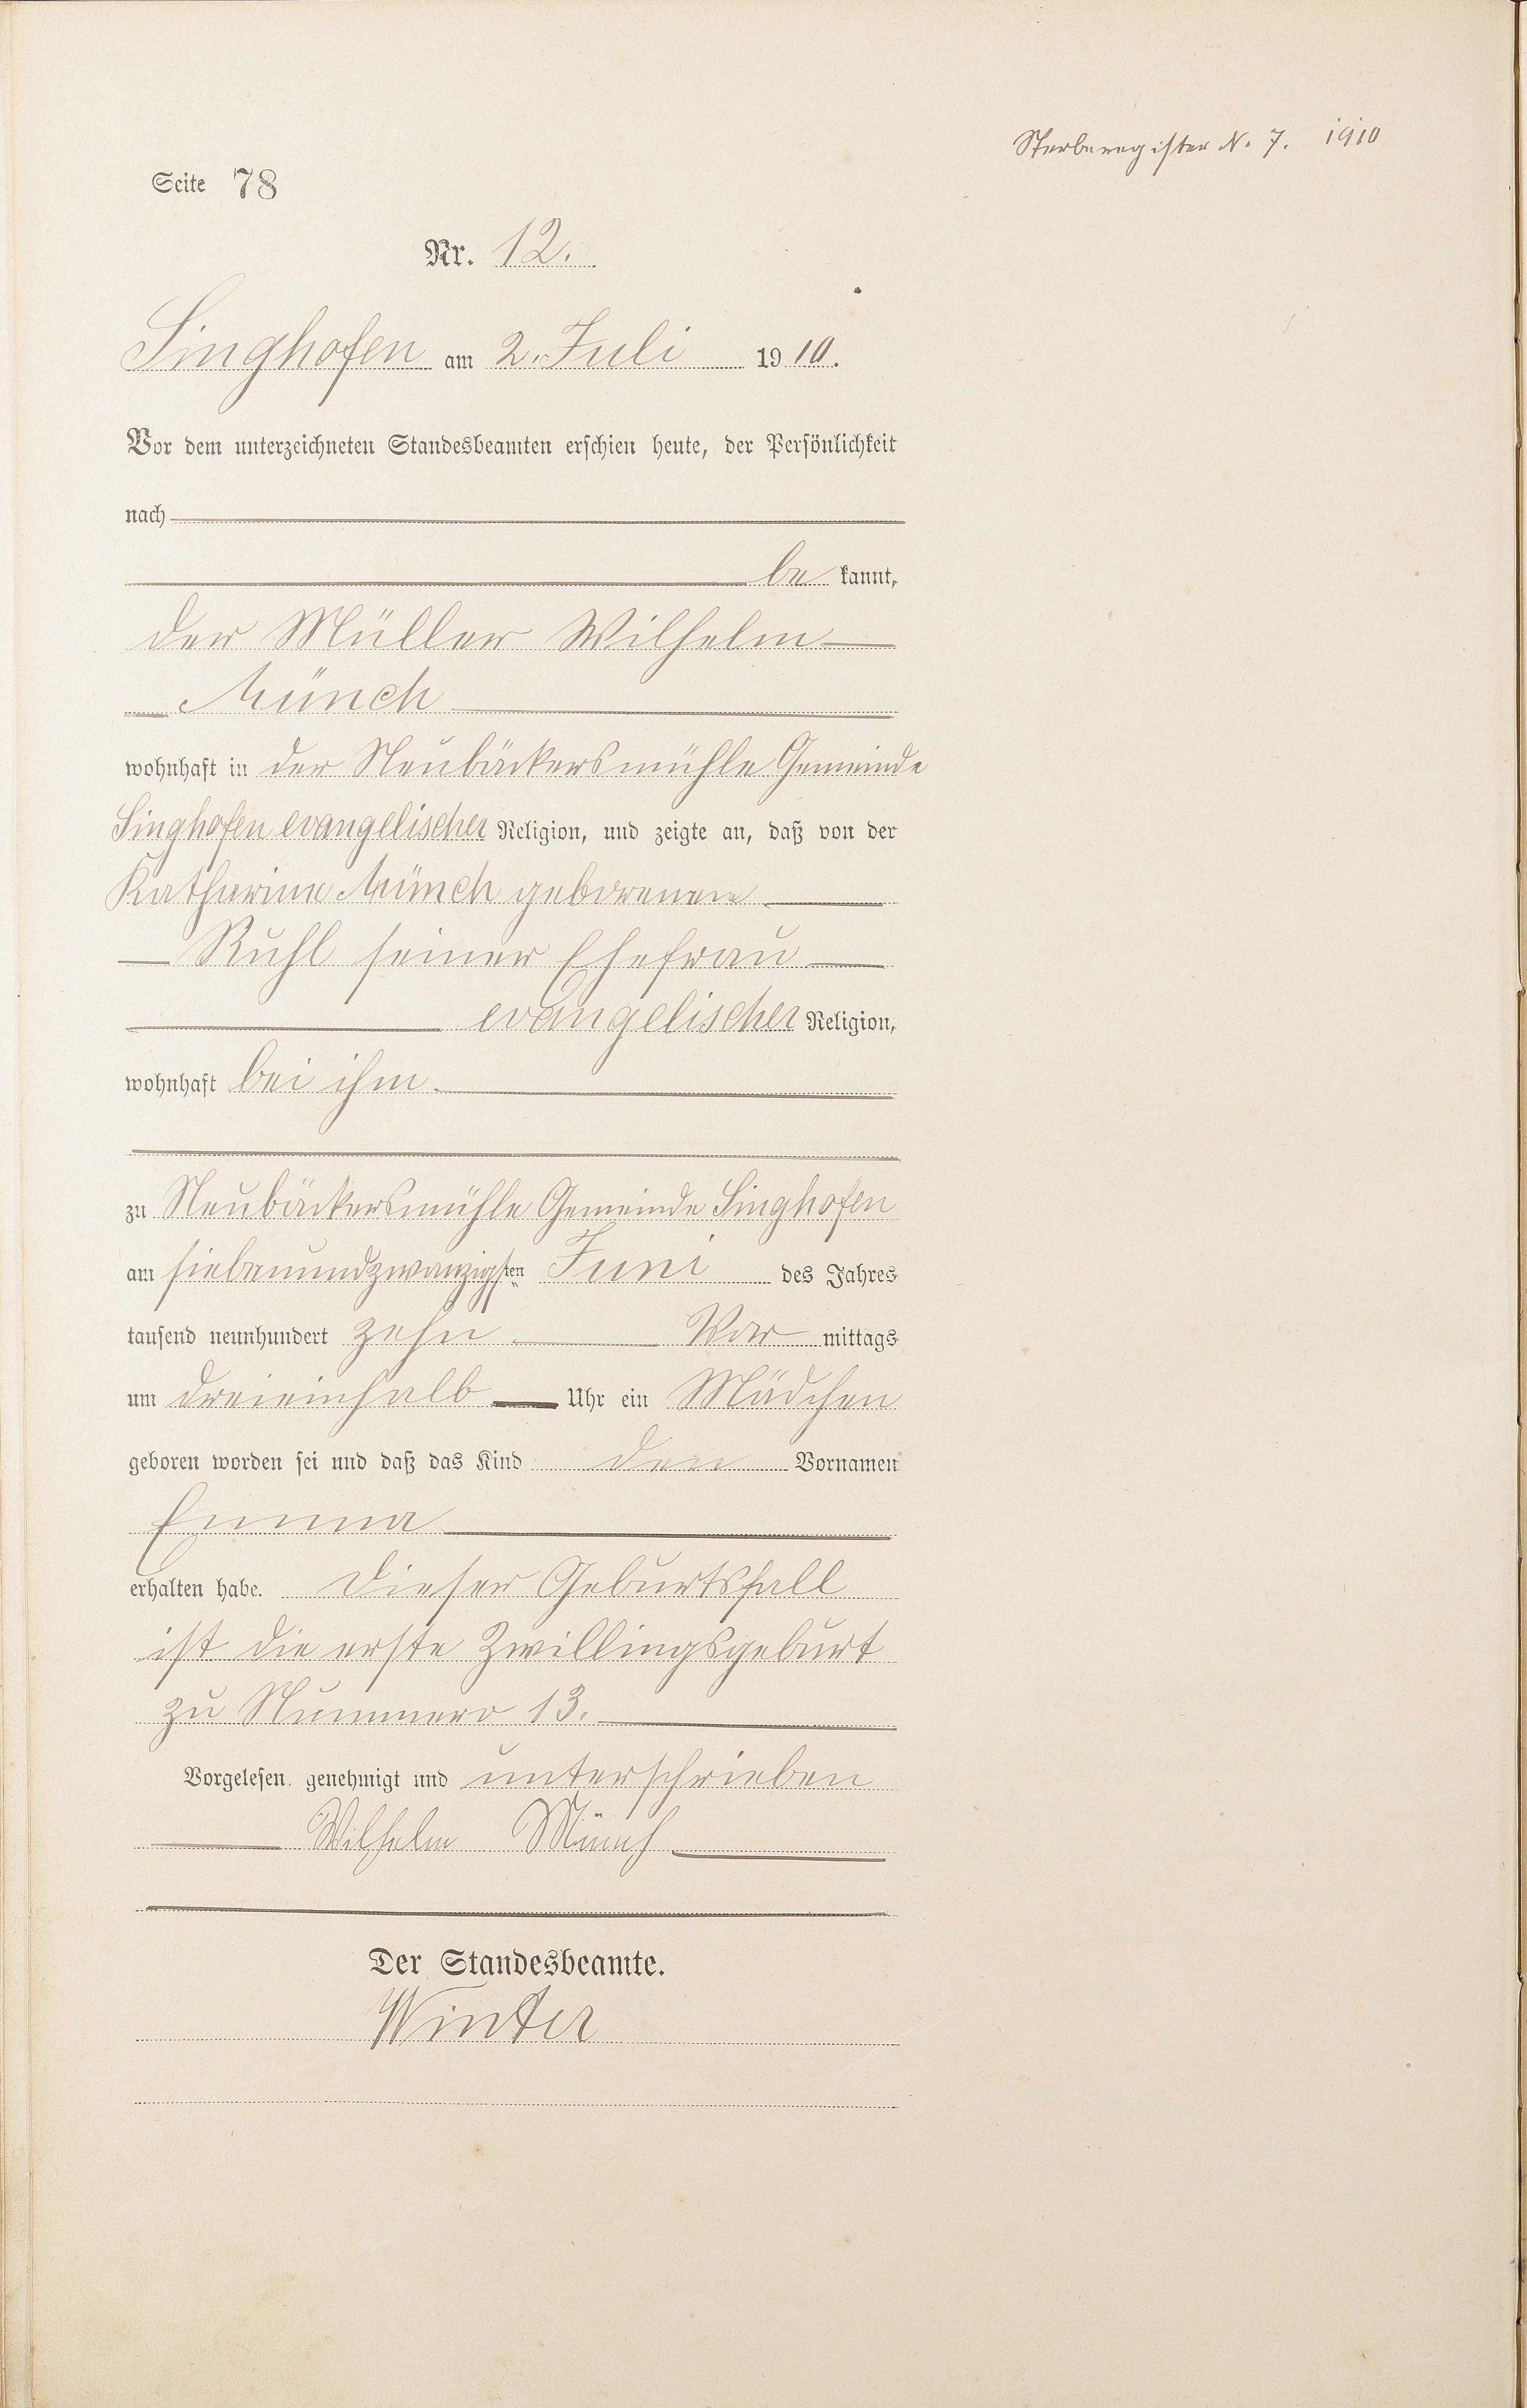 Sterberegister N. 7. 1910
Seite 78
Nr. 12.
Singhofen am 2. Juli 1910.
Vor dem unterzeichneten Standesbeamten erschien heute, der Persönlichkeit
nach
be kannt,
der Müller Wilhelm
Münch
wohnhaft in der Neubäckersmühle Gemeinde
Singhofen evangelischer Religion, und zeigte an, daß von der
Katharina Münch geborenen
Ruhl seiner Ehefrau
evangelischer Religion,
wohnhaft bei ihm.
zu Neubäckersmühle Gemeinde Singhofen
am siebenundzwanzigsten Juni des Jahres
tausend neunhundert zehn Vor mittags
um dreieinhalb Uhr ein Mädchen
geboren worden sei und daß das Kind den Vornamen
Emma
erhalten habe. Dieser Geburtsfall
ist die erste Zwillingsgeburt
zu Nummero 13.
Vorgelesen, genehmigt und unterschrieben
Wilhelm Münch
Der Standesbeamte.
Winter